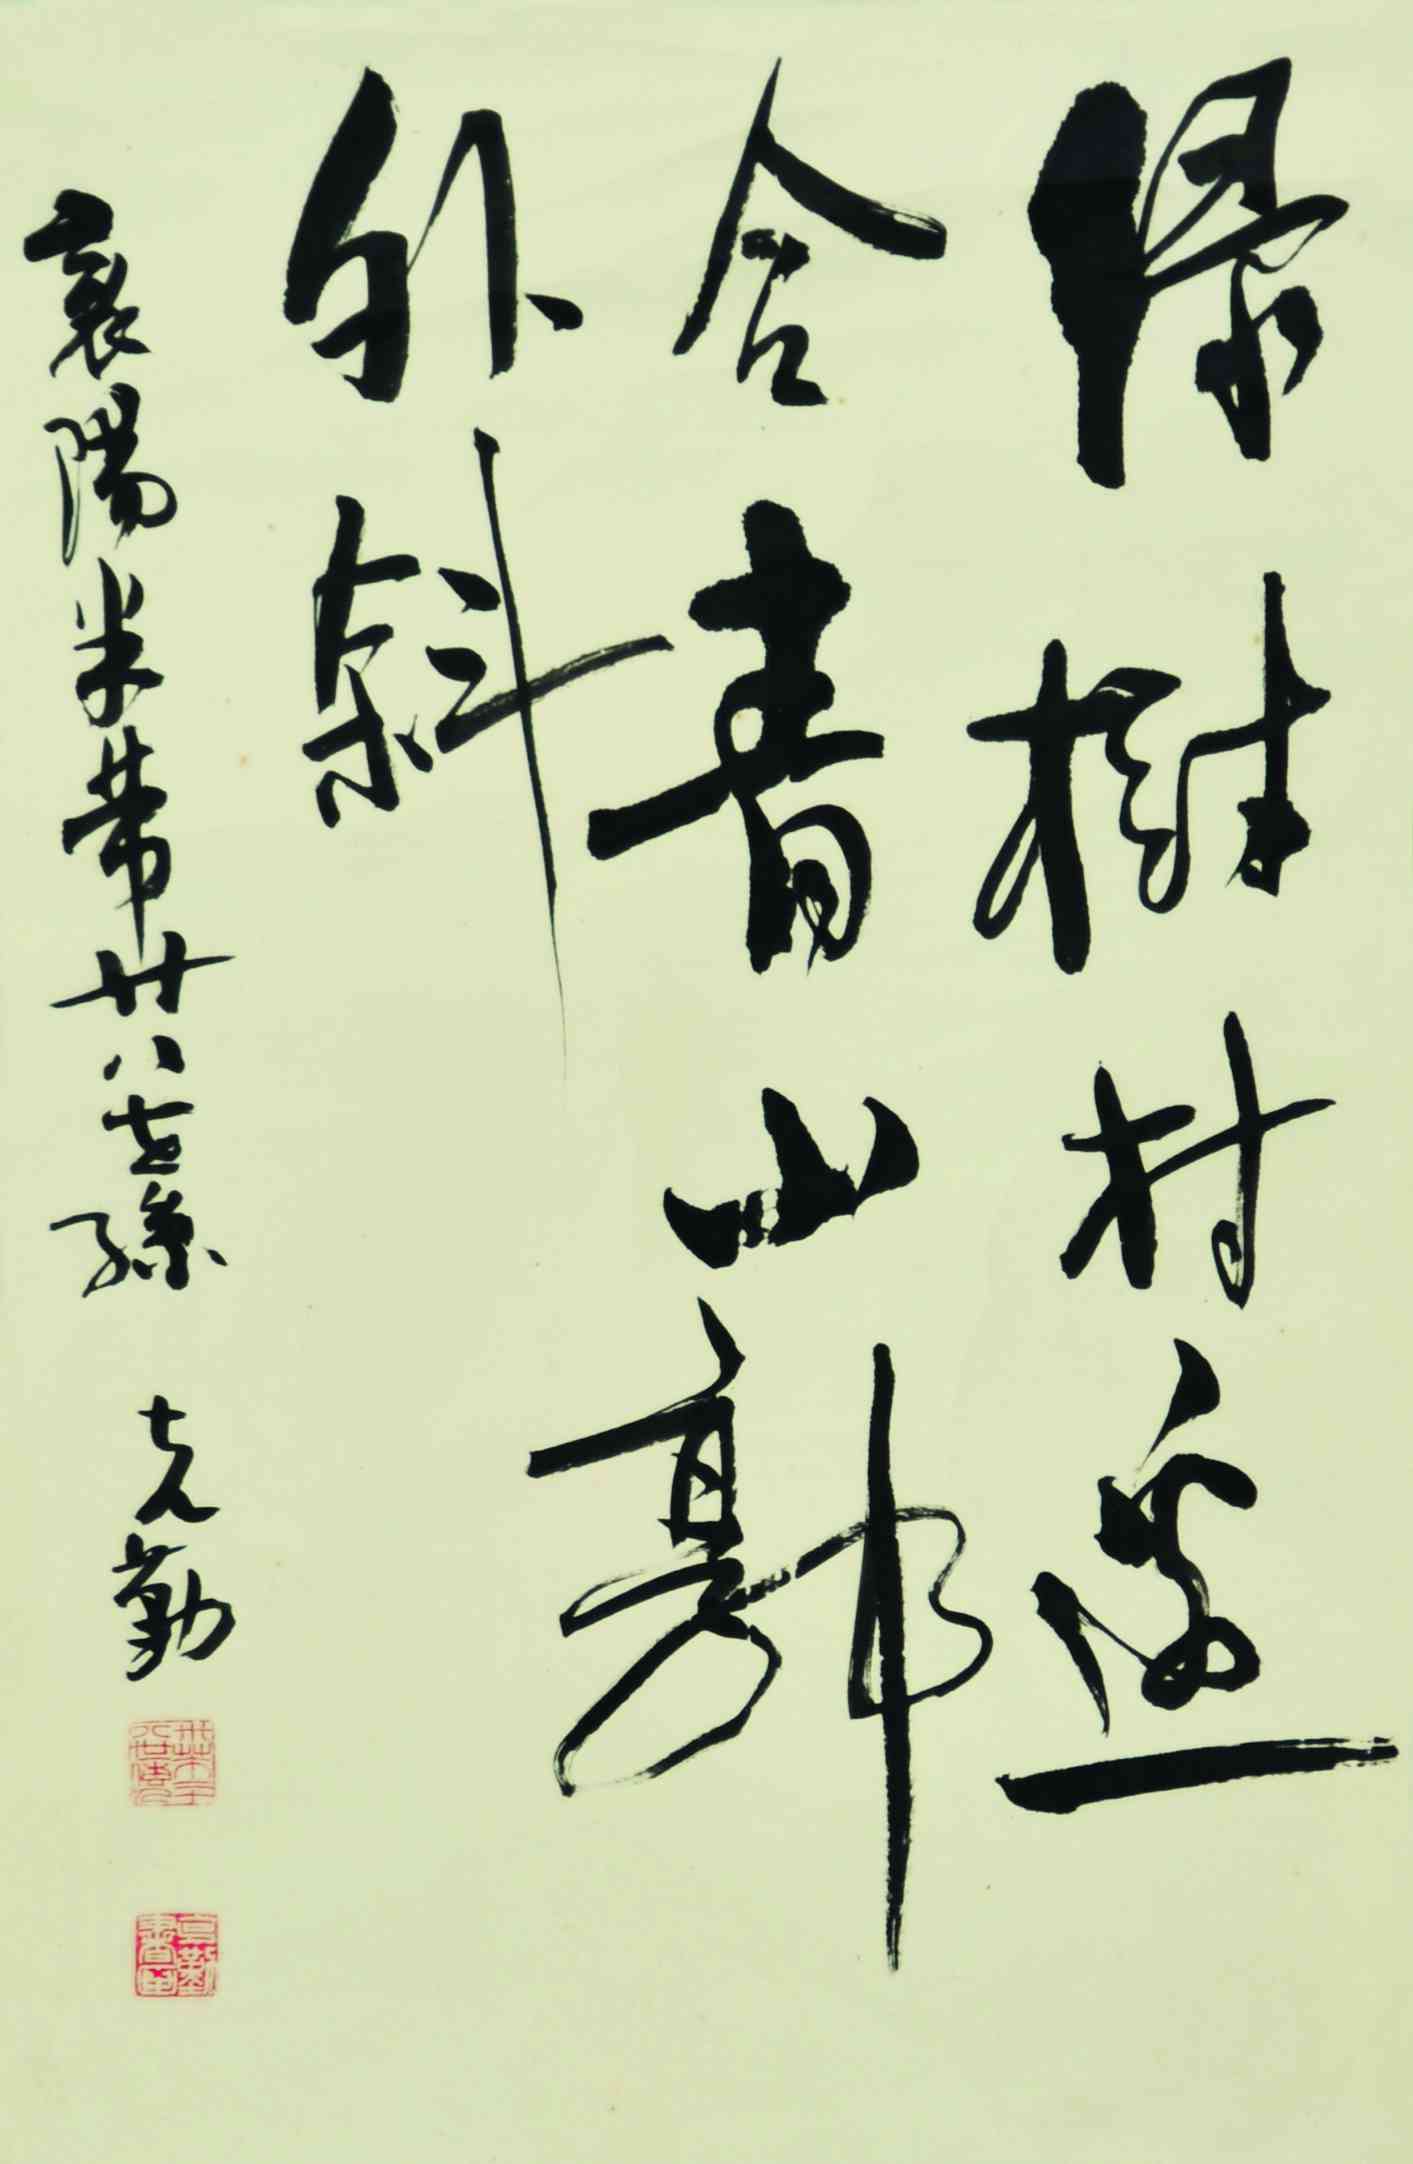 綠樹村邊
合青山郭
外斜
襄陽米芾廿八世孫 克勤